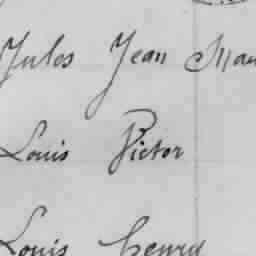 Jules Jean Mau
Louis Victor
Louis henry